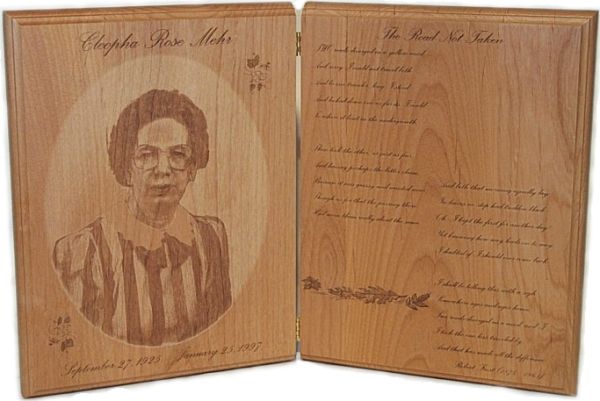 Cleopha Rose Mehr
September 27, 1925 January 25, 1997
The Road Not Taken
diverged in a yellow wood
And sorry I could not travel both
And be one traveler, long I stood
And looked down one as far as I could
To where it bent in the undergrowth
Then took the other, as just as fair
And having perhaps the better claim
Because it was grassy and wanted wear
Though as for that the passing there
Had worn them really about the same
And both that morning equally lay
In leaves no step had trodden black
Oh, I kept the first for another day
Yet knowing how way leads on to way
I doubted if I should ever come back
I shall be telling this with a sigh
Somewhere ages and ages hence
Two roads diverged in a wood and I
I took the one less traveled by
And that has made all the difference
Robert Frost